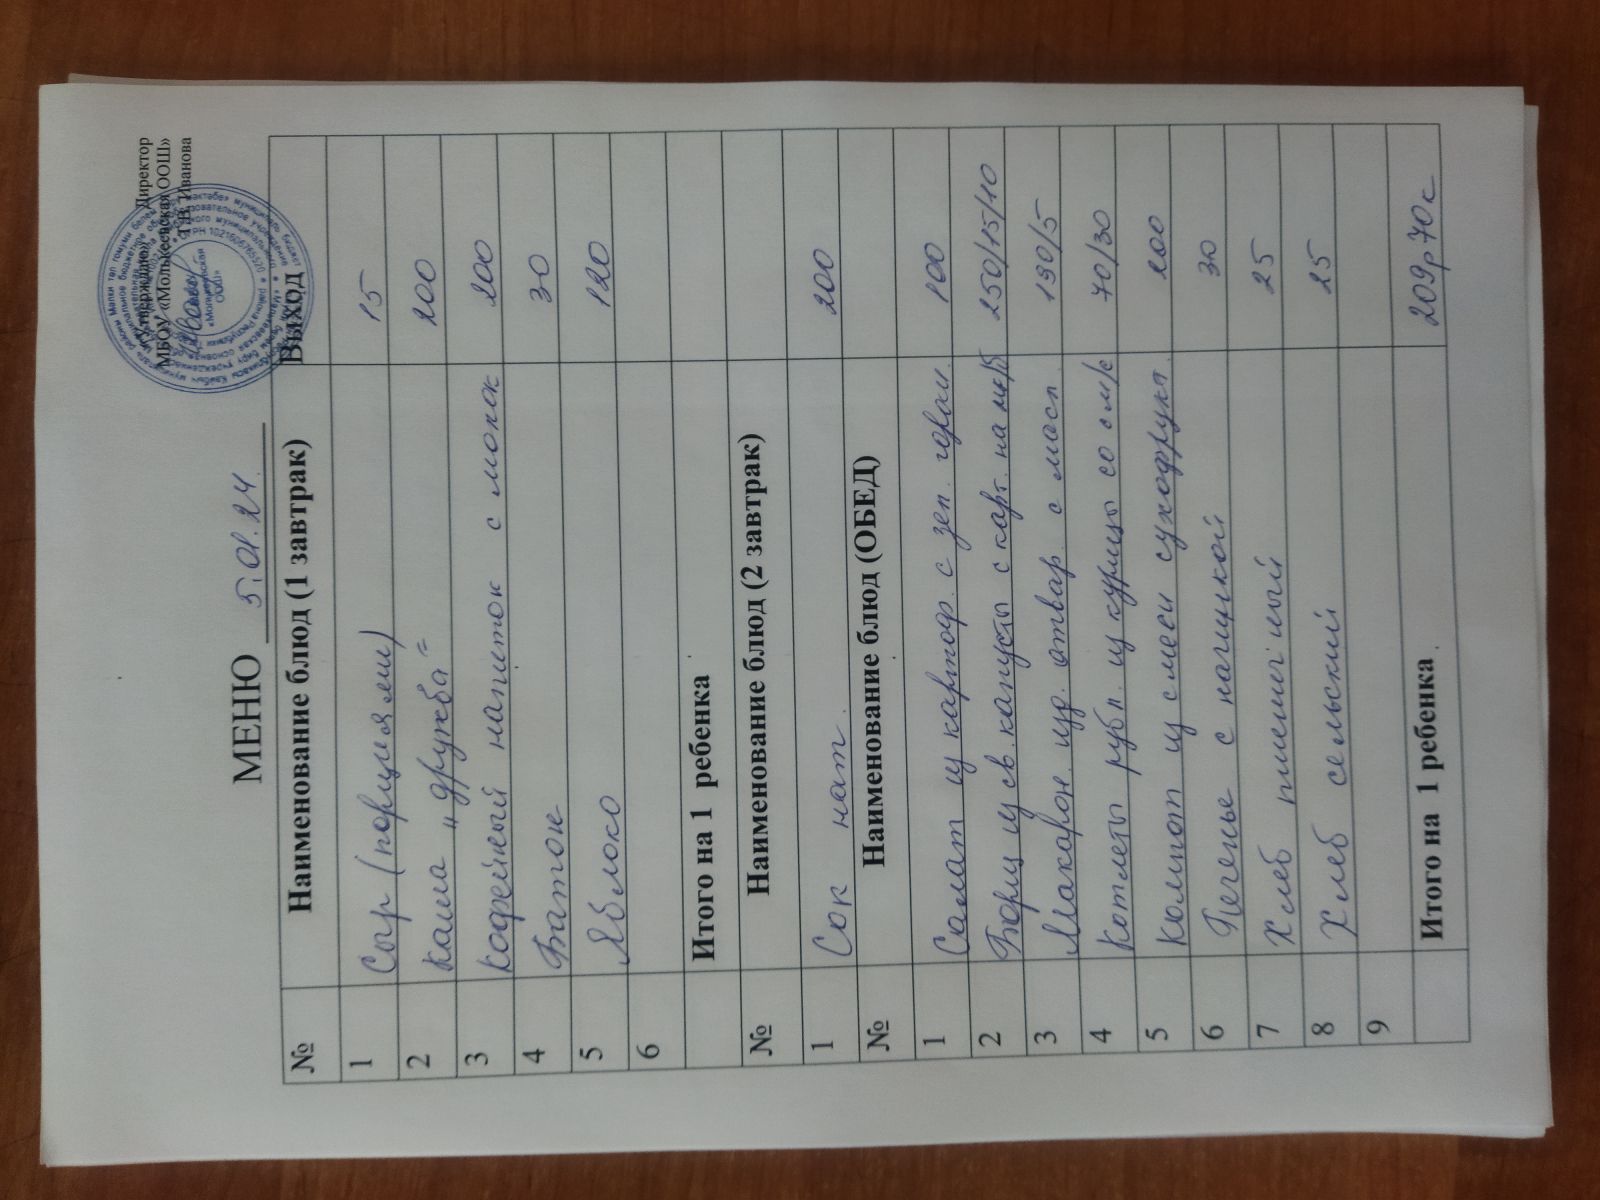 «Утверждаю» Директор
МБОУ «Молькеевская ООШ»
Т.В. Иванова
МЕНЮ 5.01.24.
№ Наименование блюд (1 завтрак) Выход
1 Сыр (порциями) 15
2 каша "дружба" 200
3 кофейный напиток с молок 200
4 Батон 30
5 Яблоко 120
6
Итого на 1 ребенка
№ Наименование блюд (2 завтрак)
1 Сок нат. 200
№ Наименование блюд (ОБЕД)
1 Салат из картоф. с зел. горош. 100
2 Борщ из св. капусты с карт. на мк/б 250/15/10
3 Макарон. изд. отвар. с масл. 190/5
4 Котлеты рубл. из курицы со сл/с 70/30
5 Компот из смеси сухофрукт. 200
6 Печенье с начинкой 30
7 Хлеб пшеничный 25
8 Хлеб сельский 25
9
Итого на 1 ребенка 209р70к